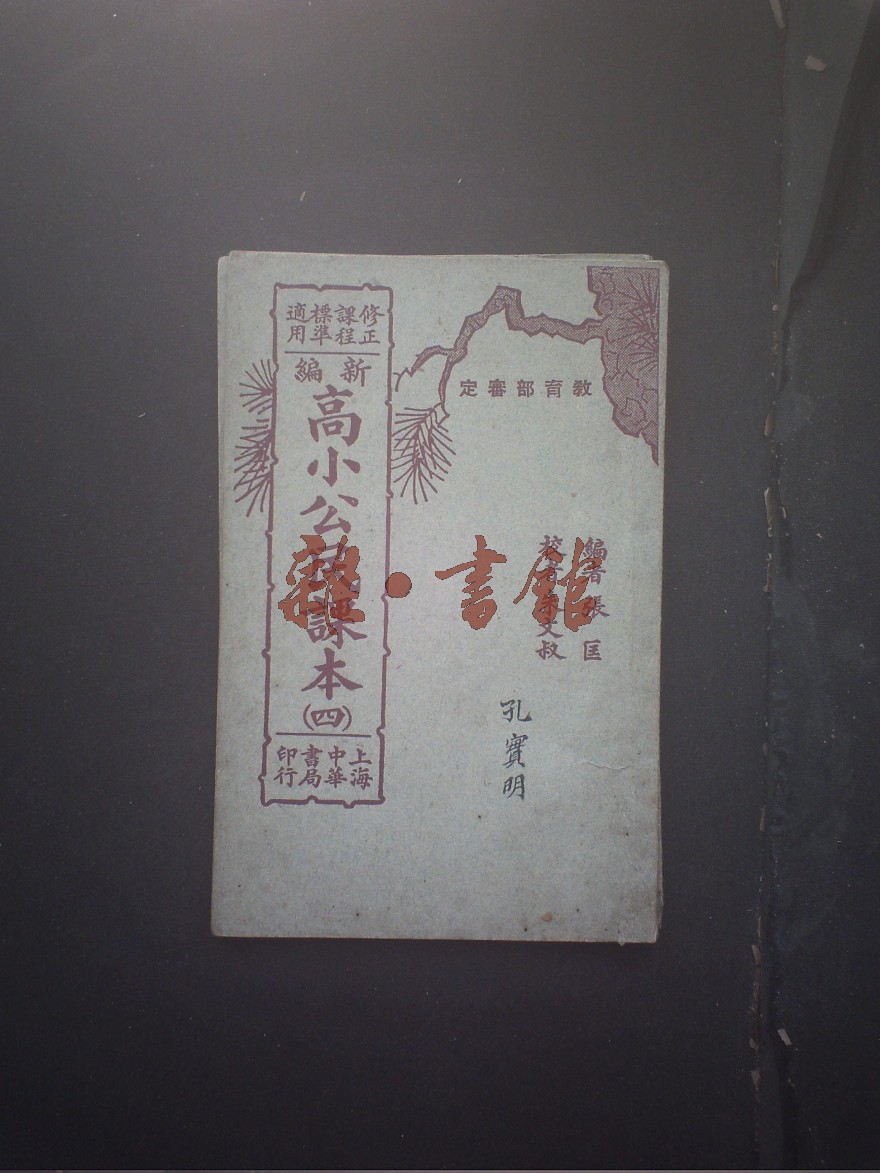 教育部審定
編者張匡
校者朱文叔
孔寶明
修正
課程
標準
適用
新編
高小公民課本
(四)
上海
中華
書局
印行
·書館